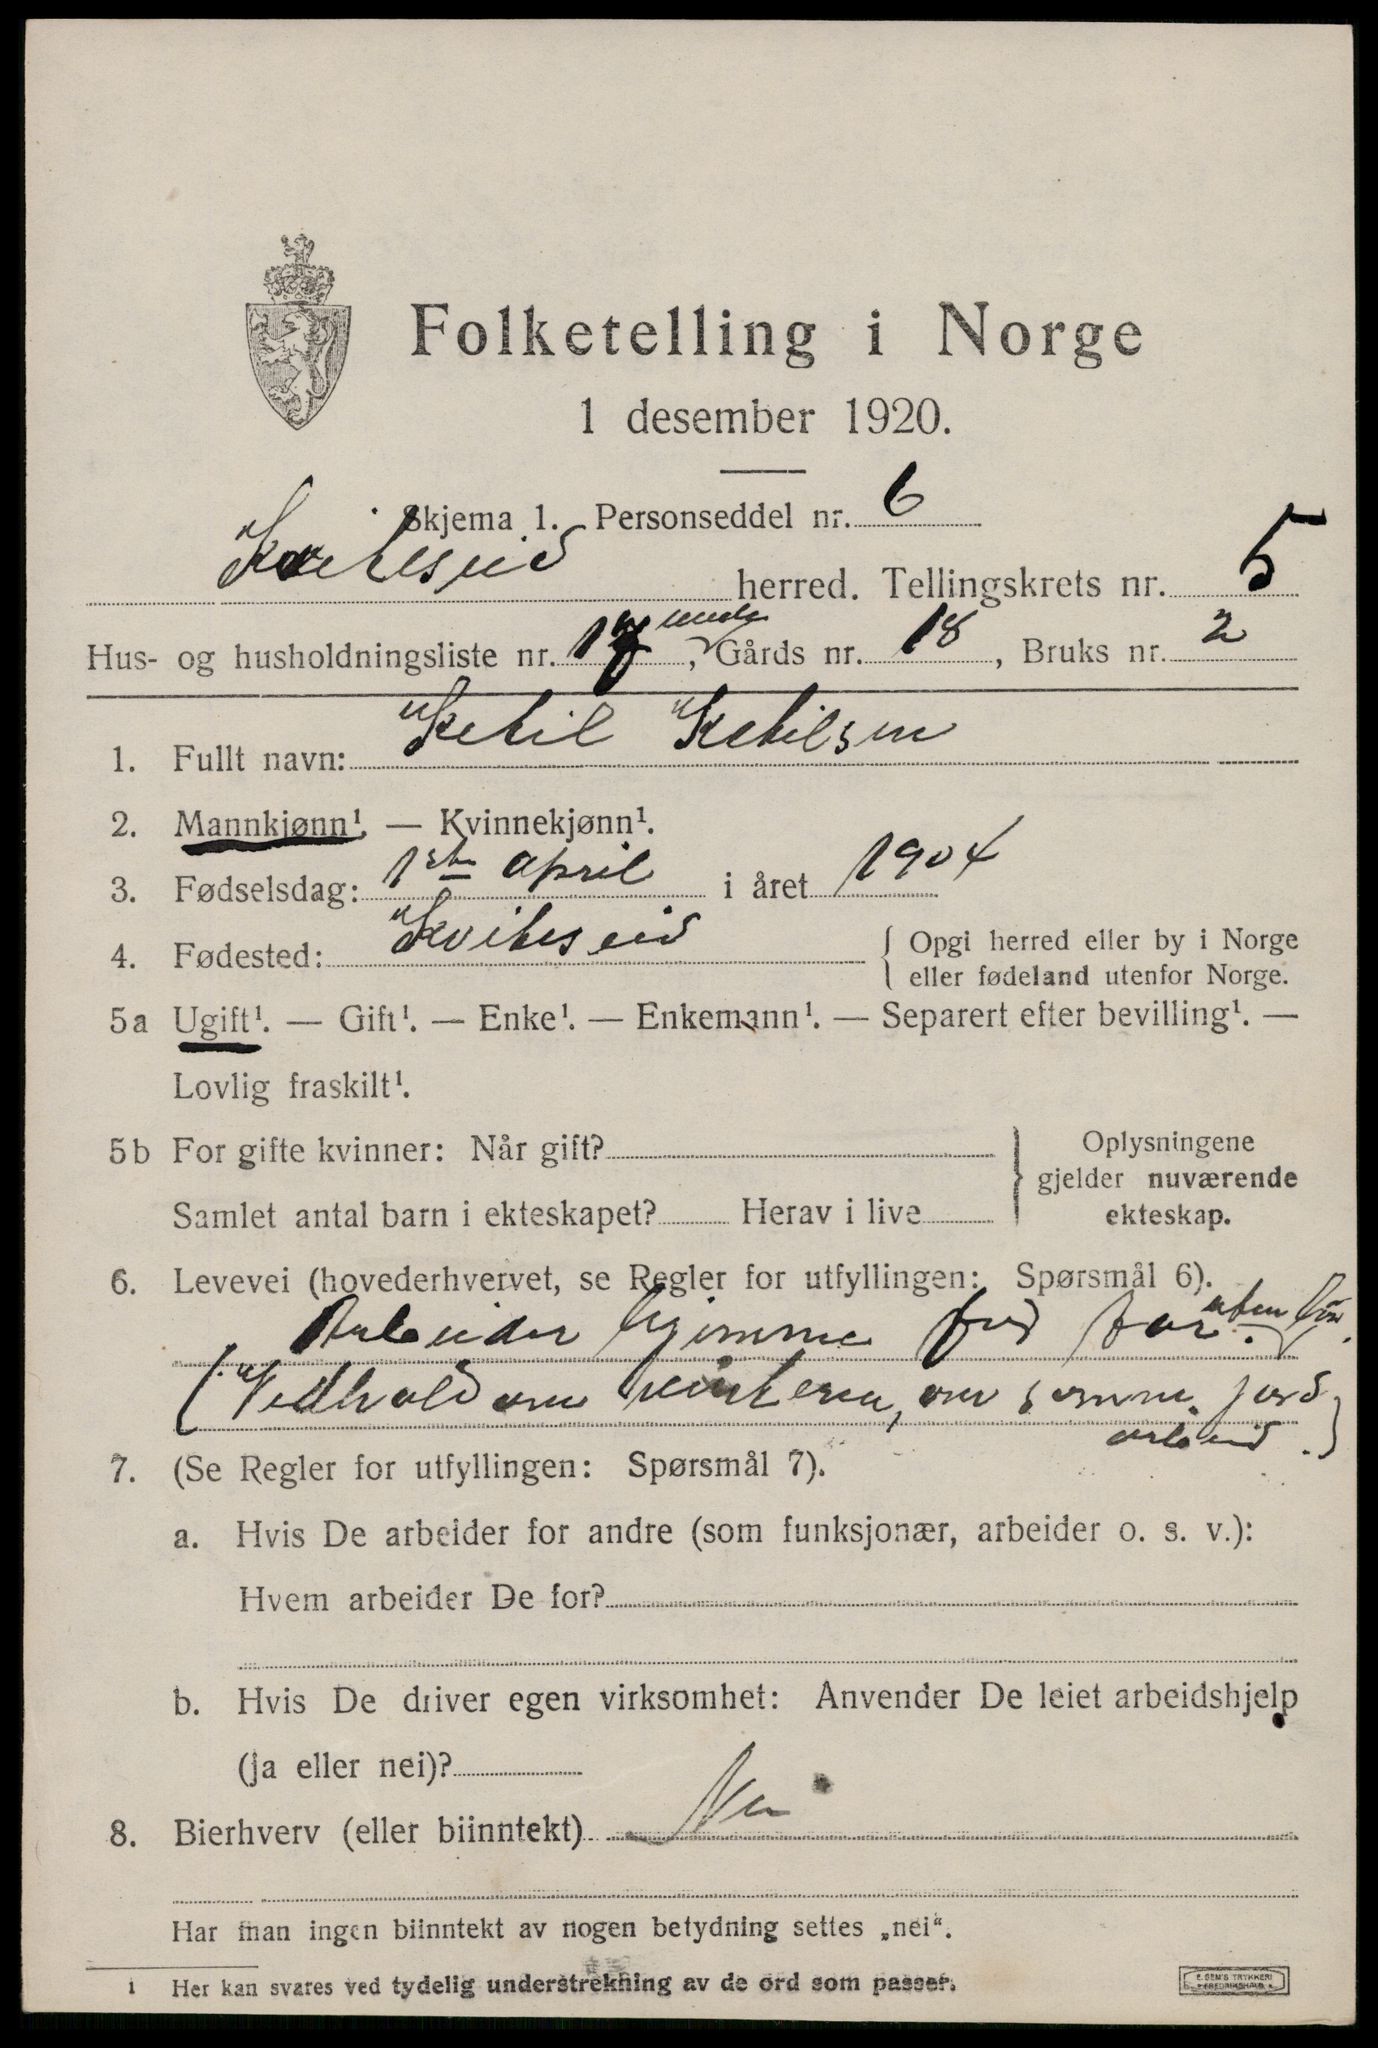 Folketelling i Norge
1 desember 1920.
Skjema 1. Personseddel nr. 6
Kviteseid herred. Tellingskrets nr. 5
Hus- og husholdningsliste nr. 17, Gårds nr. 18, Bruks nr. 2
1. Fullt navn: Ketil Ketilsen
2. Mannkjønn¹. — Kvinnekjønn¹.
3. Fødselsdag: 1ste april i året 1904
4. Fødested: Kviteseid { Opgi herred eller by i Norge
eller fødeland utenfor Norge.
5a Ugift¹. — Gift¹. — Enke¹. — Enkemann¹. — Separert efter bevilling¹. —
Lovlig fraskilt¹.
5b For gifte kvinner: Når gift? } Oplysningene
gjelder nuværende
Samlet antal barn i ekteskapet? Herav i live ekteskap.
6. Levevei (hovederhvervet, se Regler for utfyllingen: Spørsmål 6).
Arbeider hjemme for far. uten løn.
(Vedhold om vinteren, om somm. jord
arbeid.)
7. (Se Regler for utfyllingen: Spørsmål 7).
a. Hvis De arbeider for andre (som funksjonær, arbeider o. s. v.):
Hvem arbeider De for?
b. Hvis De driver egen virksomhet: Anvender De leiet arbeidshjelp
(ja eller nei)?
8. Bierhverv (eller biinntekt) Nei
Har man ingen biinntekt av nogen betydning settes „nei“.
1 Her kan svares ved tydelig understrekning av de ord som passer.
E. SEM'S TRYKKERI
FREDRIKSHALD